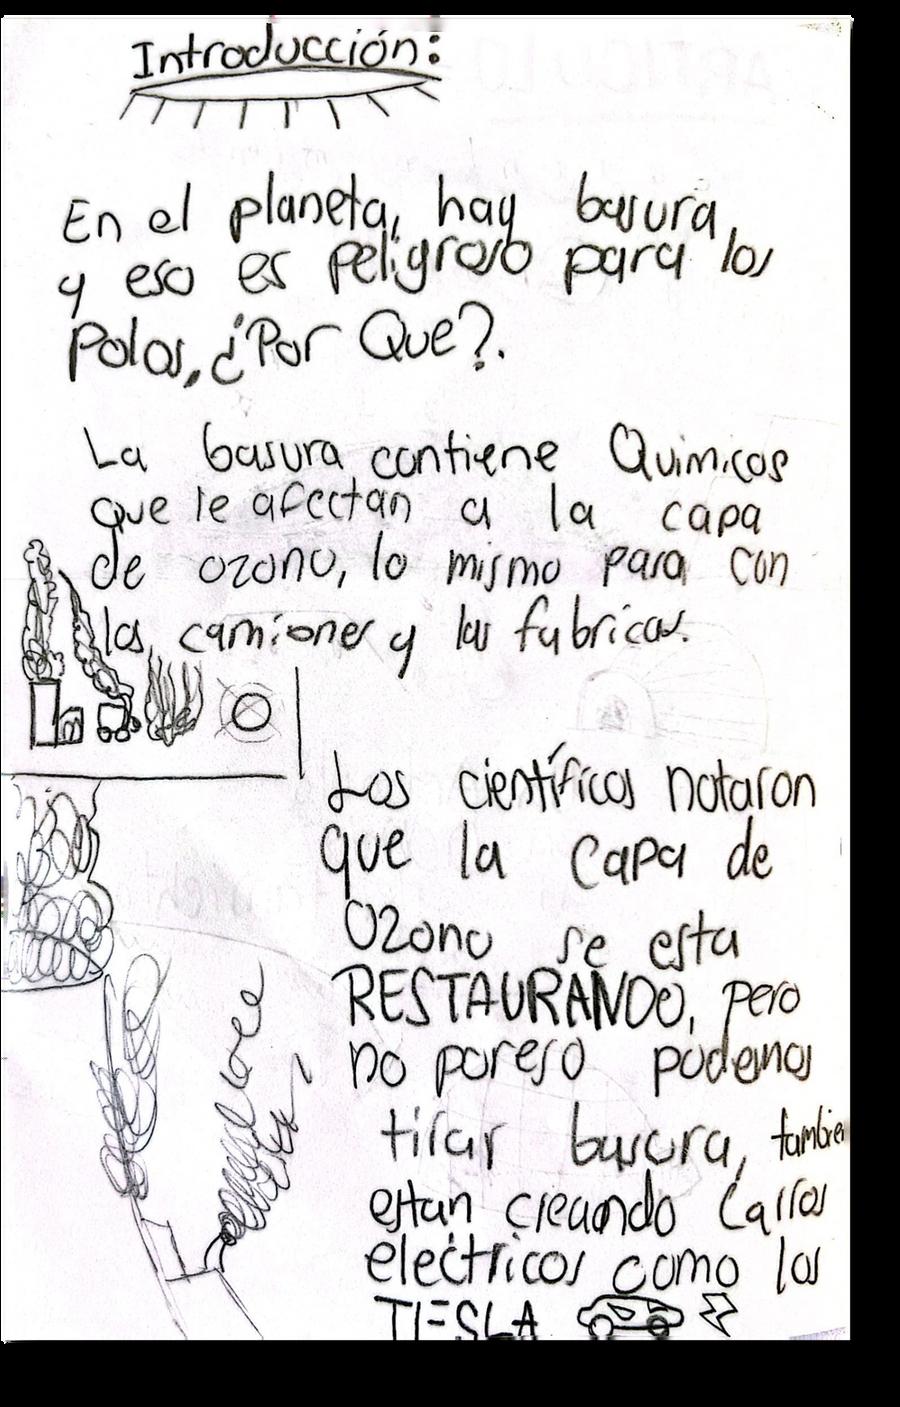 Introducción:
En el planeta, hay basura,
y eso es peligroso para los
Polos, ¿Por Que?.
La basura contiene Quimicos
que le afectan a la capa
de ozono, lo mismo para con
los camiones y las fabricas.
Los científicos notaron
que la capa de
Ozono se esta
RESTAURANDO, pero
no poreso podemos
tirar basura, tambien
estan creando Carros
electricos como los
TESLA